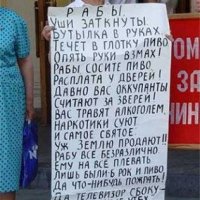 РАБЫ.
Уши заткнуты.
Бутылка в руках.
Течёт в глотку пиво
Опять руки в змах!
Рабы сосите пиво.
Расплата у двери!
Давно вас оккупанты
считают за зверей!
Вас травят алкоголем,
наркотики суют
и самое святое
уж землю продают!!
Рабу всё безразлично
Ему на всё плевать.
Лишь были б рок и пиво,
Да что-нибудь пожрать!
Да телевизор сбоку-
РОМ
ЗА
НИН